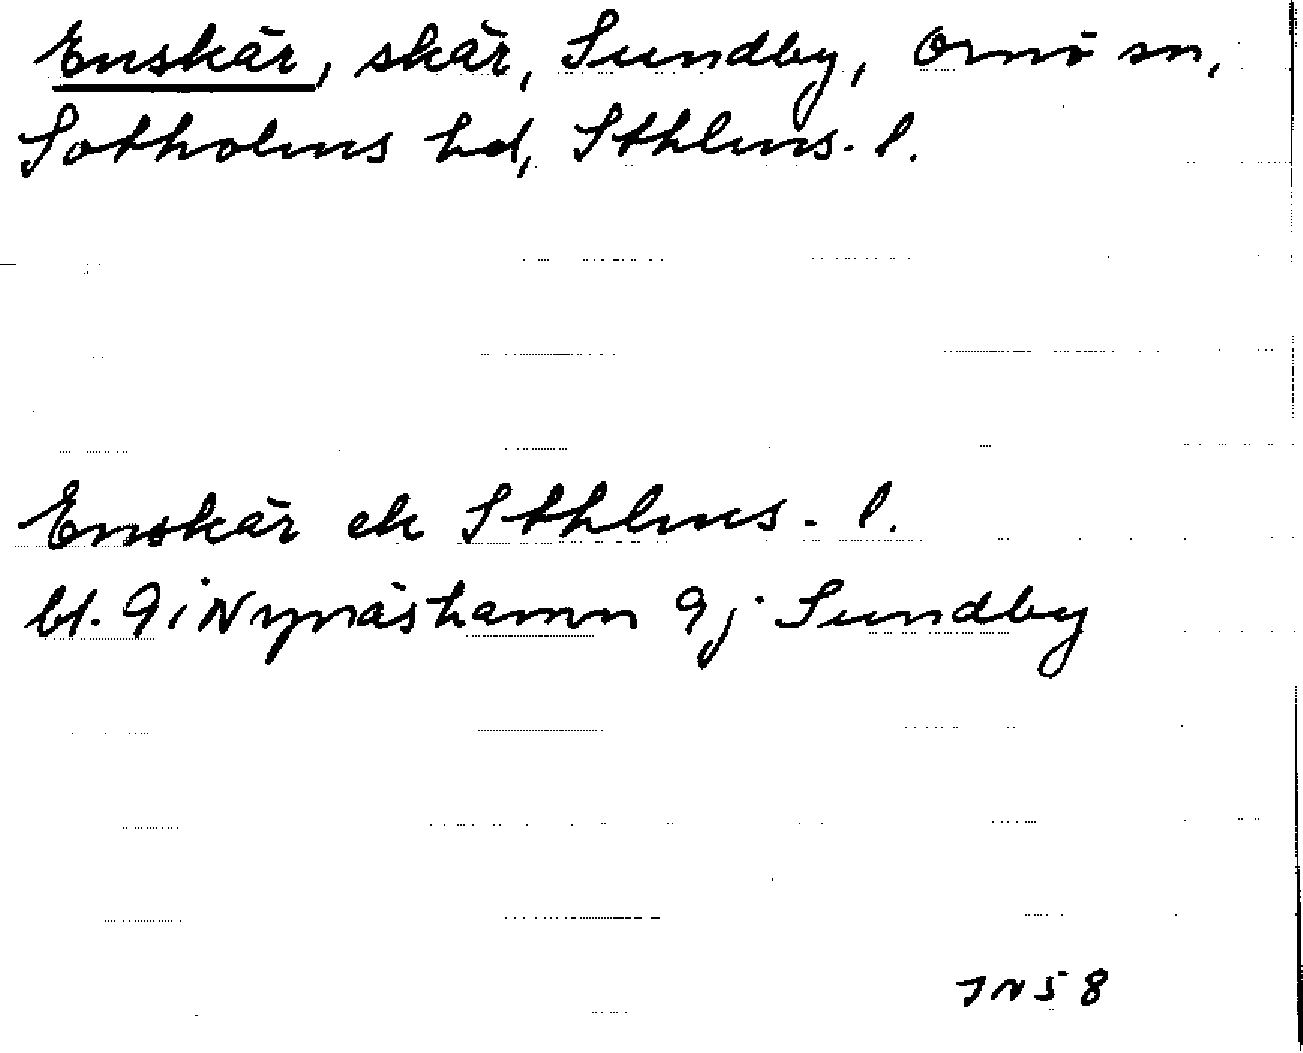 Enskär, skär, Sundby, Ornö sn,
Sotholms hd, Sthlms. l.
Enskär ek Sthlms. l.
bl. 9 i Nynäshamn 9j Sundby
JN58